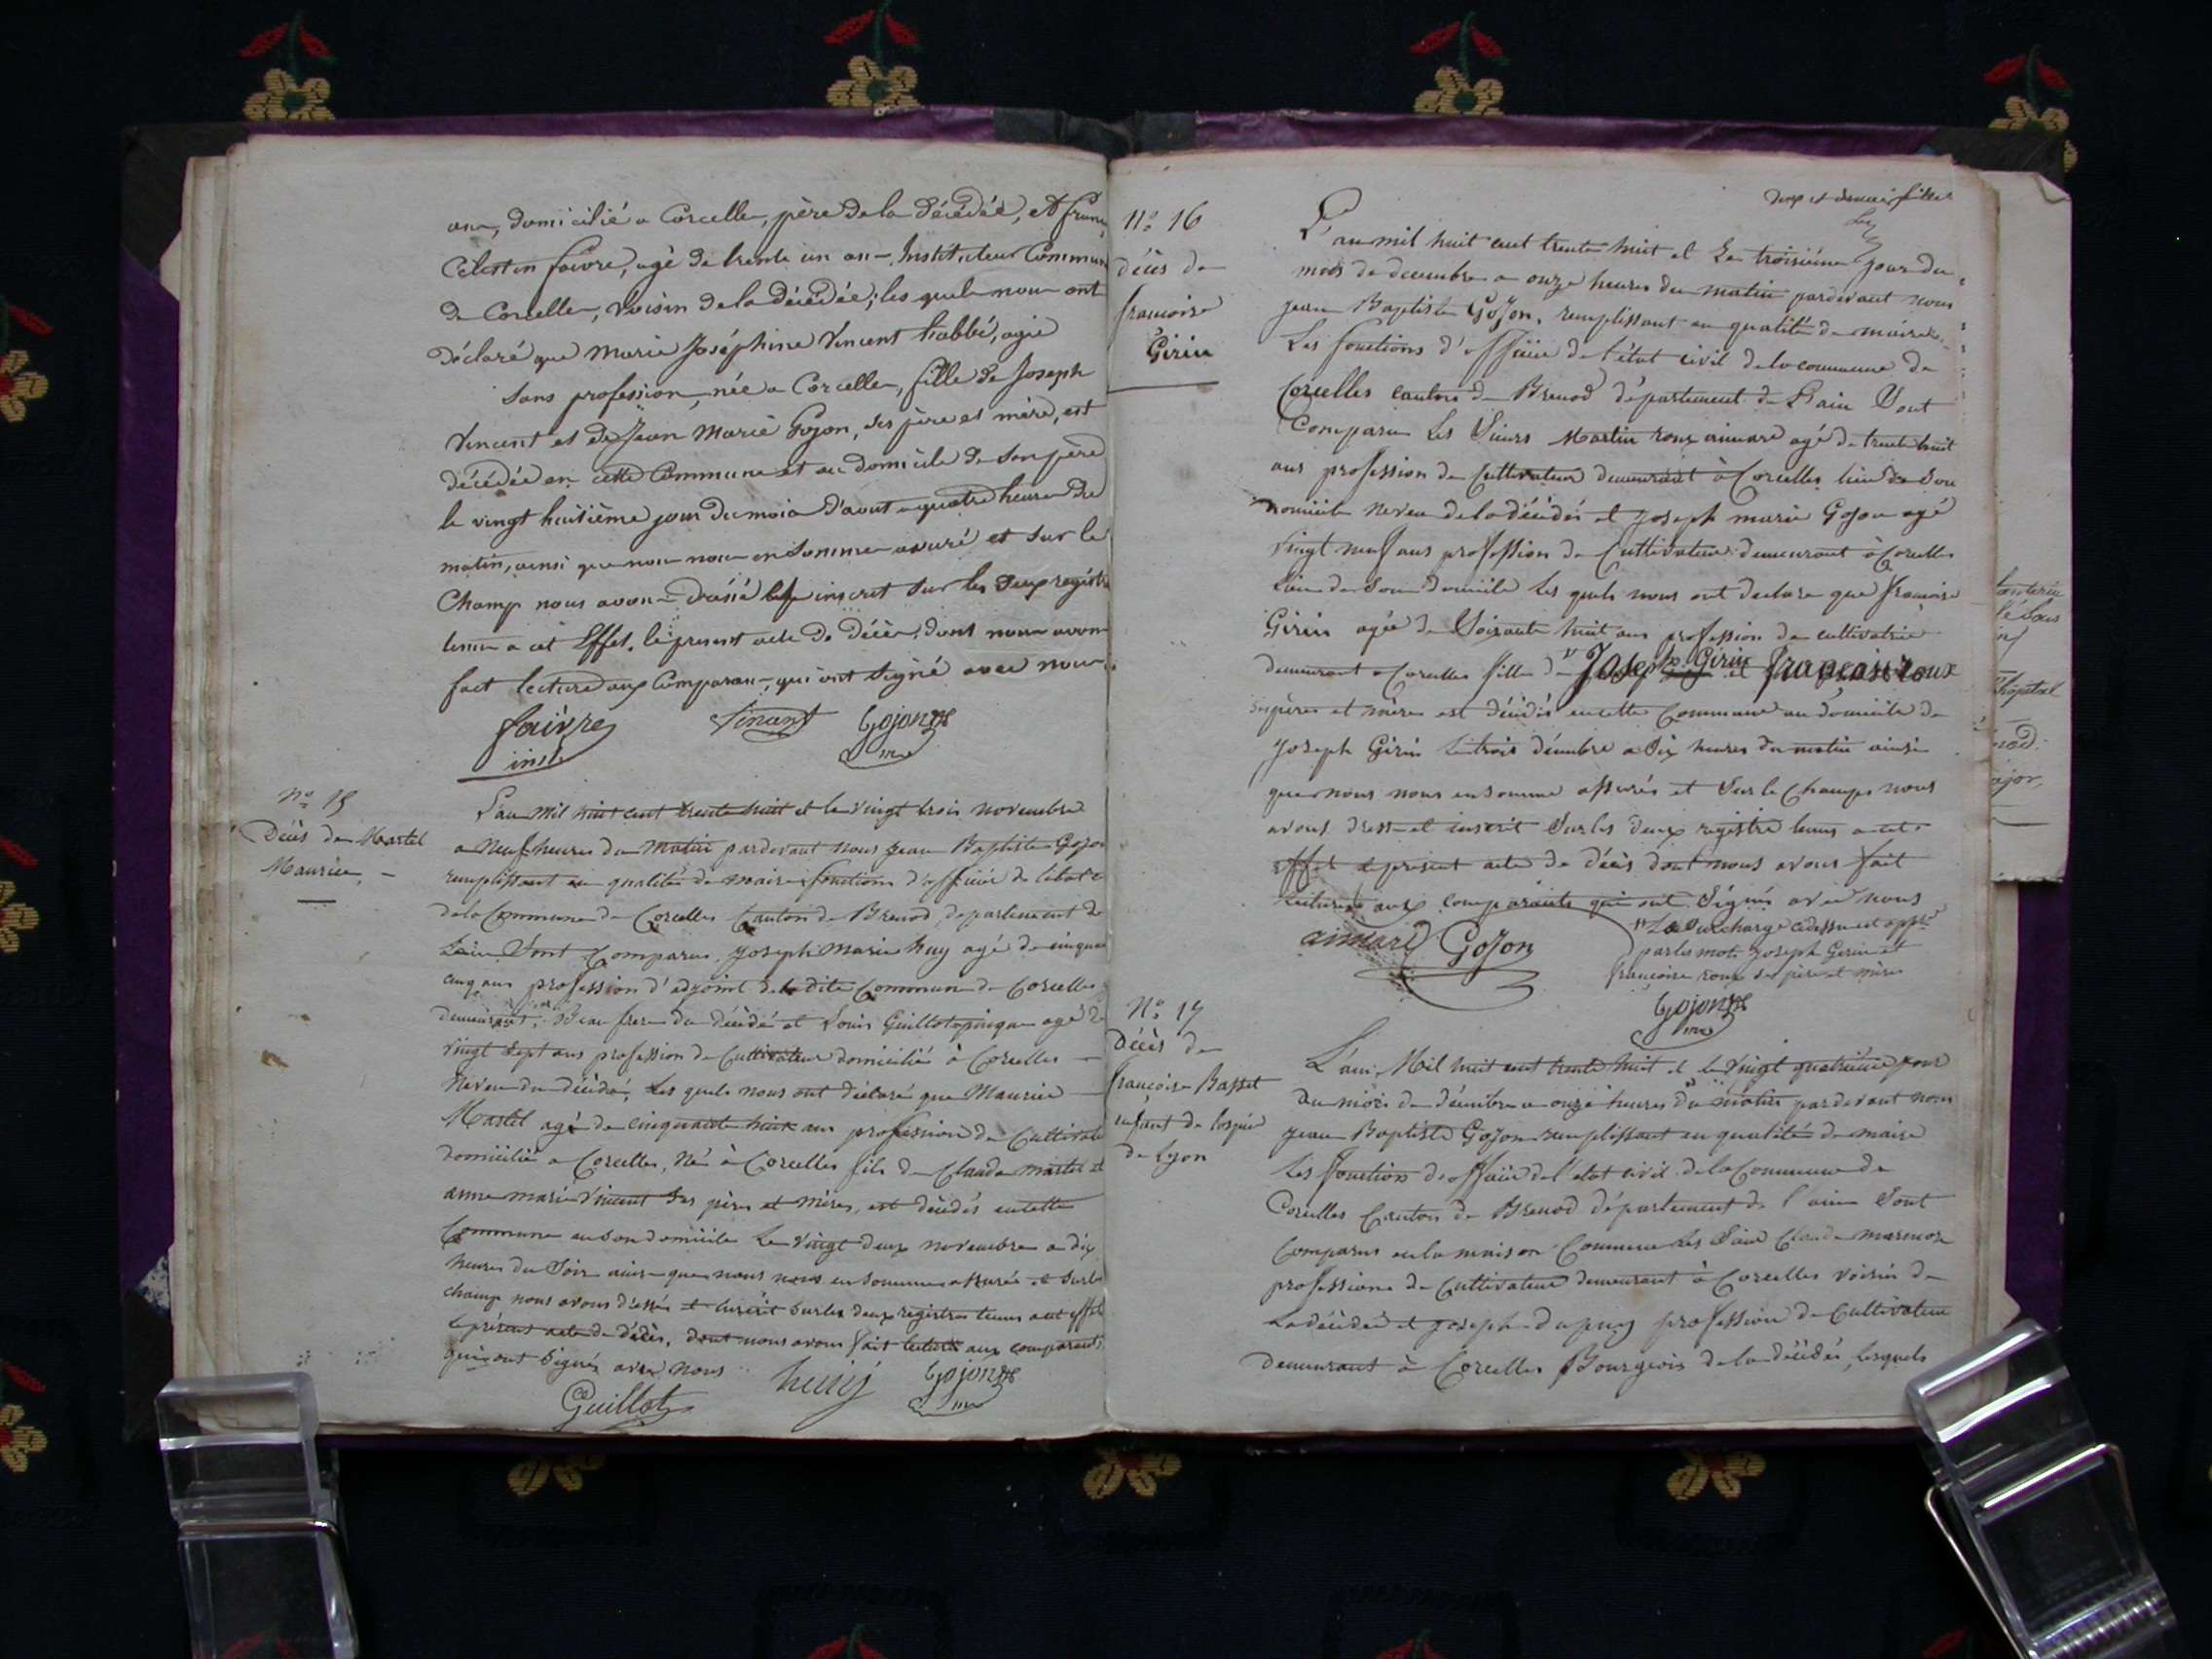 ans, domicilié a Corcelles, père de la décédée, et franç
Celestin faivre, agé de trente un ans, Instituteur Commun
de Corcelles, Voisin de la décédée; les quels nous ont
déclaré que Marie Joséphine Vincent agée
sans profession, née a Corcelles, fille de Joseph
Vincent et de Jean Marie Gojon, ses père et mère, est
décédée en cette Commune et au domicile de son père
le vingt huitième jour du mois d'aout a quatre heures du
matin, ainsi que nous nous en sommes assuré et sur le
Champ nous avons dréssé et inscrit sur les deux registre
tenus a cet Effet, le present acte de décès, dont nous avons
fait lecture aux Comparans, qui ont signé avec nous
faivre
inst.
Vincent
Gojon
me
No 15
Décès de Martel
Maurice
L'an mil huit cent trente huit et le vingt trois novembre
a Neuf heures du matin pardevant nous jean Baptiste Gojon
remplissant en qualité de maire fonctions d'officié de l'etat c
de la Commune de Corcelles Canton de Brenod, departement de
L'ain Sont Comparus Joseph Marie huy agé de cinquan
cinq ans profession d'adjoint de la dite Commune de Corcelles
demeurant, Beau frere du décédé et Louis Guillot agé de
vingt sept ans profession de Cultivateur domicilié à Corcelles
Neveu du décédé, Les quels nous ont déclaré que Maurice
Martel agé de cinquante huit ans profession de Cultivate
domicilié a Corcelles, Né à Corcelles fils de Claude martel et
anne marie Vincent Ses pères et mères, est décédés en cette
Commune en son domicile Le vingt deux novembre a dix
heures du Soir ainsi que nous nous en sommes assurés et sur le
champ nous avons dressés et inscrit sur les deux registres tenus a cet effet
le présent acte de décès, dont nous avons fait lecture aux comparants
qui ont signés avec nous
Guillot
huij
Gojon
me
No 16
décès de
francoise
Girin
L'an mil huit cent trente huit et Le troisième jour du
mois de decembre a onze heures du matin pardevant nous
jean Baptiste Gojon, remplissant en qualité de maire
Les fonctions d'officié de l'état civil de la commune de
Corcelles canton de Brenod département de L'ain Sont
Comparu Les Sieurs Martin roux aimard agé de trente huit
ans profession de Cultivateur demeurant à Corcelles lieu de son
domicile Neveu de la décédés et Joseph marie Gojon agé
vingt neuf ans profession de Cultivateur demeurant à Corcelles
Lieu de Son domicile Les quels nous ont declare que francoise
Girin agée de Soixante huit ans profession de cultivatrice
demeurant a Corcelles fille de Joseph Girin et françoise roux
Ses pères et mères est décédés en cette Commune au domicile de
Joseph Girin Le trois décembre a Six heures du matin ainsi
que nous nous en somme assurés et Sur le Champs nous
avons dressé et inscrit Sur les deux registre tenus a cet
effet le présent acte de décès dont nous avons fait
Lectures aux comparaints qui ont Signés avec nous
aimard Gojon
La Surcharge cidessus est appr
par les mots Joseph Girin et
françoise roux ses père et mère
Gojon
me
No 17
Décès de
françoise Basset
enfant de l'ospice
de Lyon
L'an Mil huit cent trente huit et le vingt quatrième jour
du mois de décembre a onze heures du matin pardevant nous
jean Baptiste Gojon remplissant en qualité de maire
Les fonction d'officié de l'etat civil de la Commune de
Corcelles Canton de Brenod département de l'ain Sont
Comparus en la maison Commune Les Sieur Claude
profession de Cultivateur demeurant à Corcelles voisin de
La décédée et Joseph dupuy profession de Cultivateur
demeurant à Corcelles Bourgeois de la décédés, Lesquels